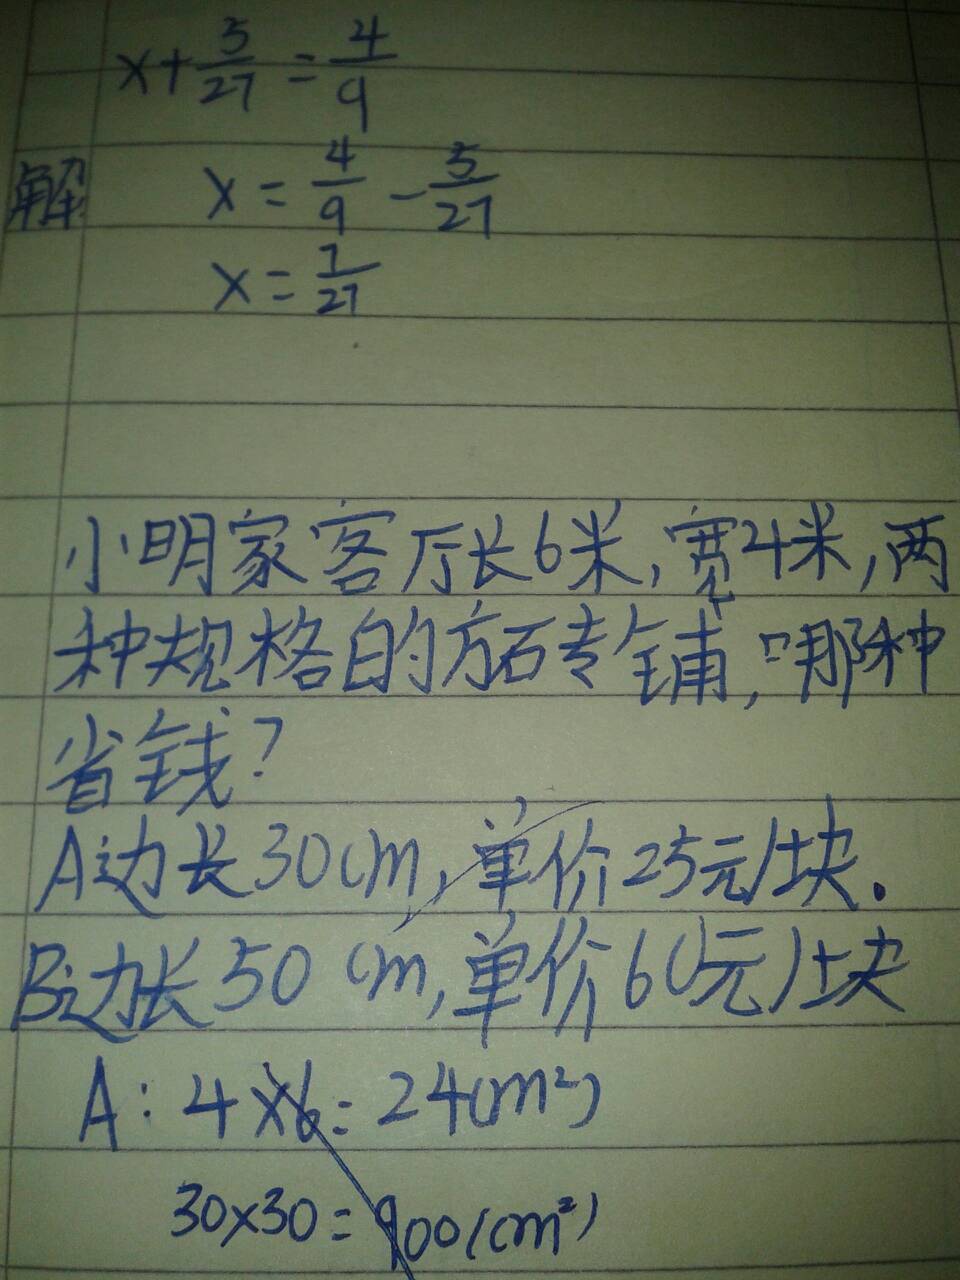 x+5/27=4/9
解 x=4/9-5/27
x=7/27
小明家客厅长6米,宽4米,两
种规格的方石专铺,哪种
省钱?
A边长30cm,单价25元/块.
B边长50cm,单价60元/块
A:4×6=24(m²)
30×30=900(cm²)